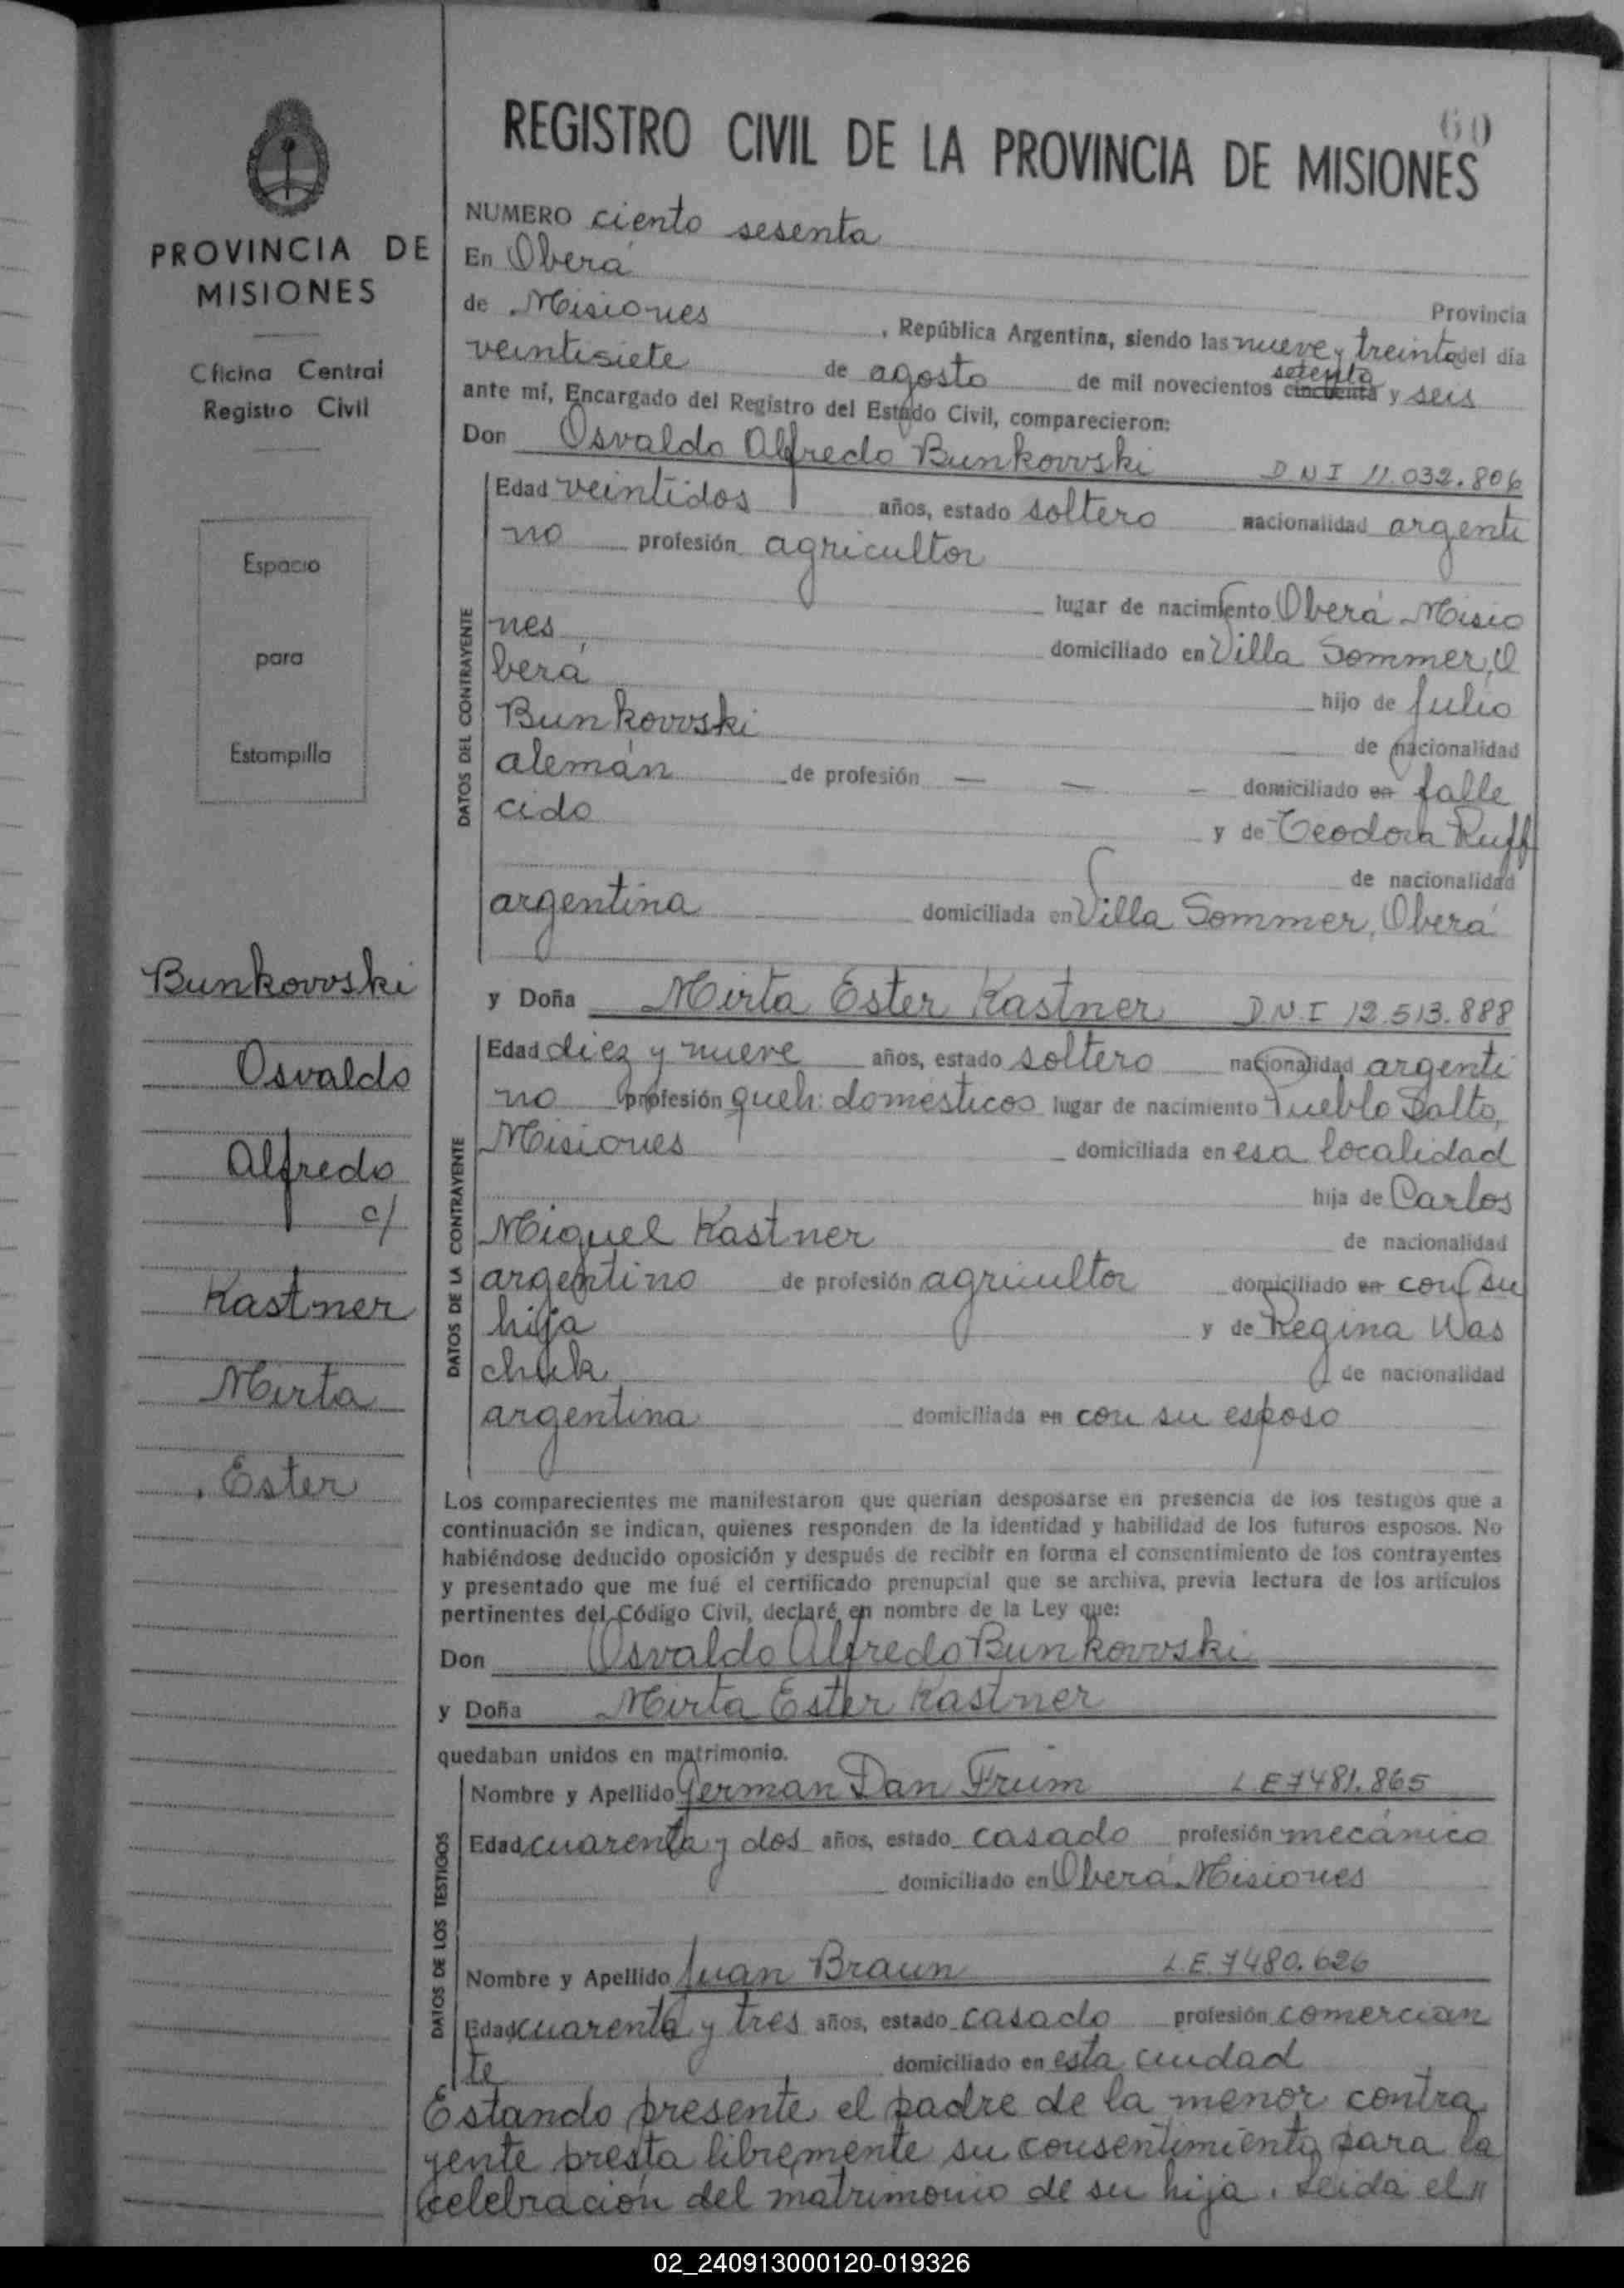 60
REGISTRO CIVIL DE LA PROVINCIA DE MISIONES
PROVINCIA DE
MISIONES
Oficina Central
Registro Civil
Espacio
para
Estampilla
Bunkowski
Osvaldo
Alfredo
c/
Kastner
Mirta
Ester
NUMERO ciento sesenta
En Oberá
Provincia
de Misiones, República Argentina, siendo las nueve y treinta del día
veintisiete de agosto de mil novecientos cincuenta setenta y seis
ante mí, Encargado del Registro del Estado Civil, comparecieron:
Don Osvaldo Alfredo Bunkowski DNI 11.032.806
DATOS DEL CONTRAYENTE
Edad veintidos años, estado soltero nacionalidad argenti
no profesión agricultor
lugar de nacimiento Oberá Misio
nes domiciliado en Villa Sommer, O
berá hijo de Julio
Bunkowski de nacionalidad
alemán de profesión — — — domiciliado en falle
cido y de Teodora Ruff
de nacionalidad
argentina domiciliada en Villa Sommer, Oberá
y Doña Mirta Ester Kastner D.N.I 12.513.888
DATOS DE LA CONTRAYENTE
Edad diez y nueve años, estado soltero nacionalidad argenti
no profesión queh: domésticos lugar de nacimiento Pueblo Salto,
Misiones domiciliada en esa localidad
hija de Carlos
Miguel Kastner de nacionalidad
argentino de profesión agricultor domiciliado en con su
hija y de Regina Was
chuk de nacionalidad
argentina domiciliada en con su esposo
Los comparecientes me manifestaron que querían desposarse en presencia de los testigos que a
continuación se indican, quienes responden de la identidad y habilidad de los futuros esposos. No
habiéndose deducido oposición y después de recibir en forma el consentimiento de los contrayentes
y presentado que me fué el certificado prenupcial que se archiva, previa lectura de los artículos
pertinentes del Código Civil, declaré en nombre de la Ley que:
Don Osvaldo Alfredo Bunkowski
y Doña Mirta Ester Kastner
quedaban unidos en matrimonio.
DATOS DE LOS TESTIGOS
Nombre y Apellido German Dan Frum L E 7481.865
Edad cuarenta y dos años, estado casado profesión mecánico
domiciliado en Oberá Misiones
Nombre y Apellido Juan Braun L.E. 7480.626
Edad cuarenta y tres años, estado casado profesión comercian
te domiciliado en esta ciudad
Estando presente el padre de la menor contra
yente presta libremente su consentimiento para la
celebración del matrimonio de su hija. Leida el //
02_240913000120-019326